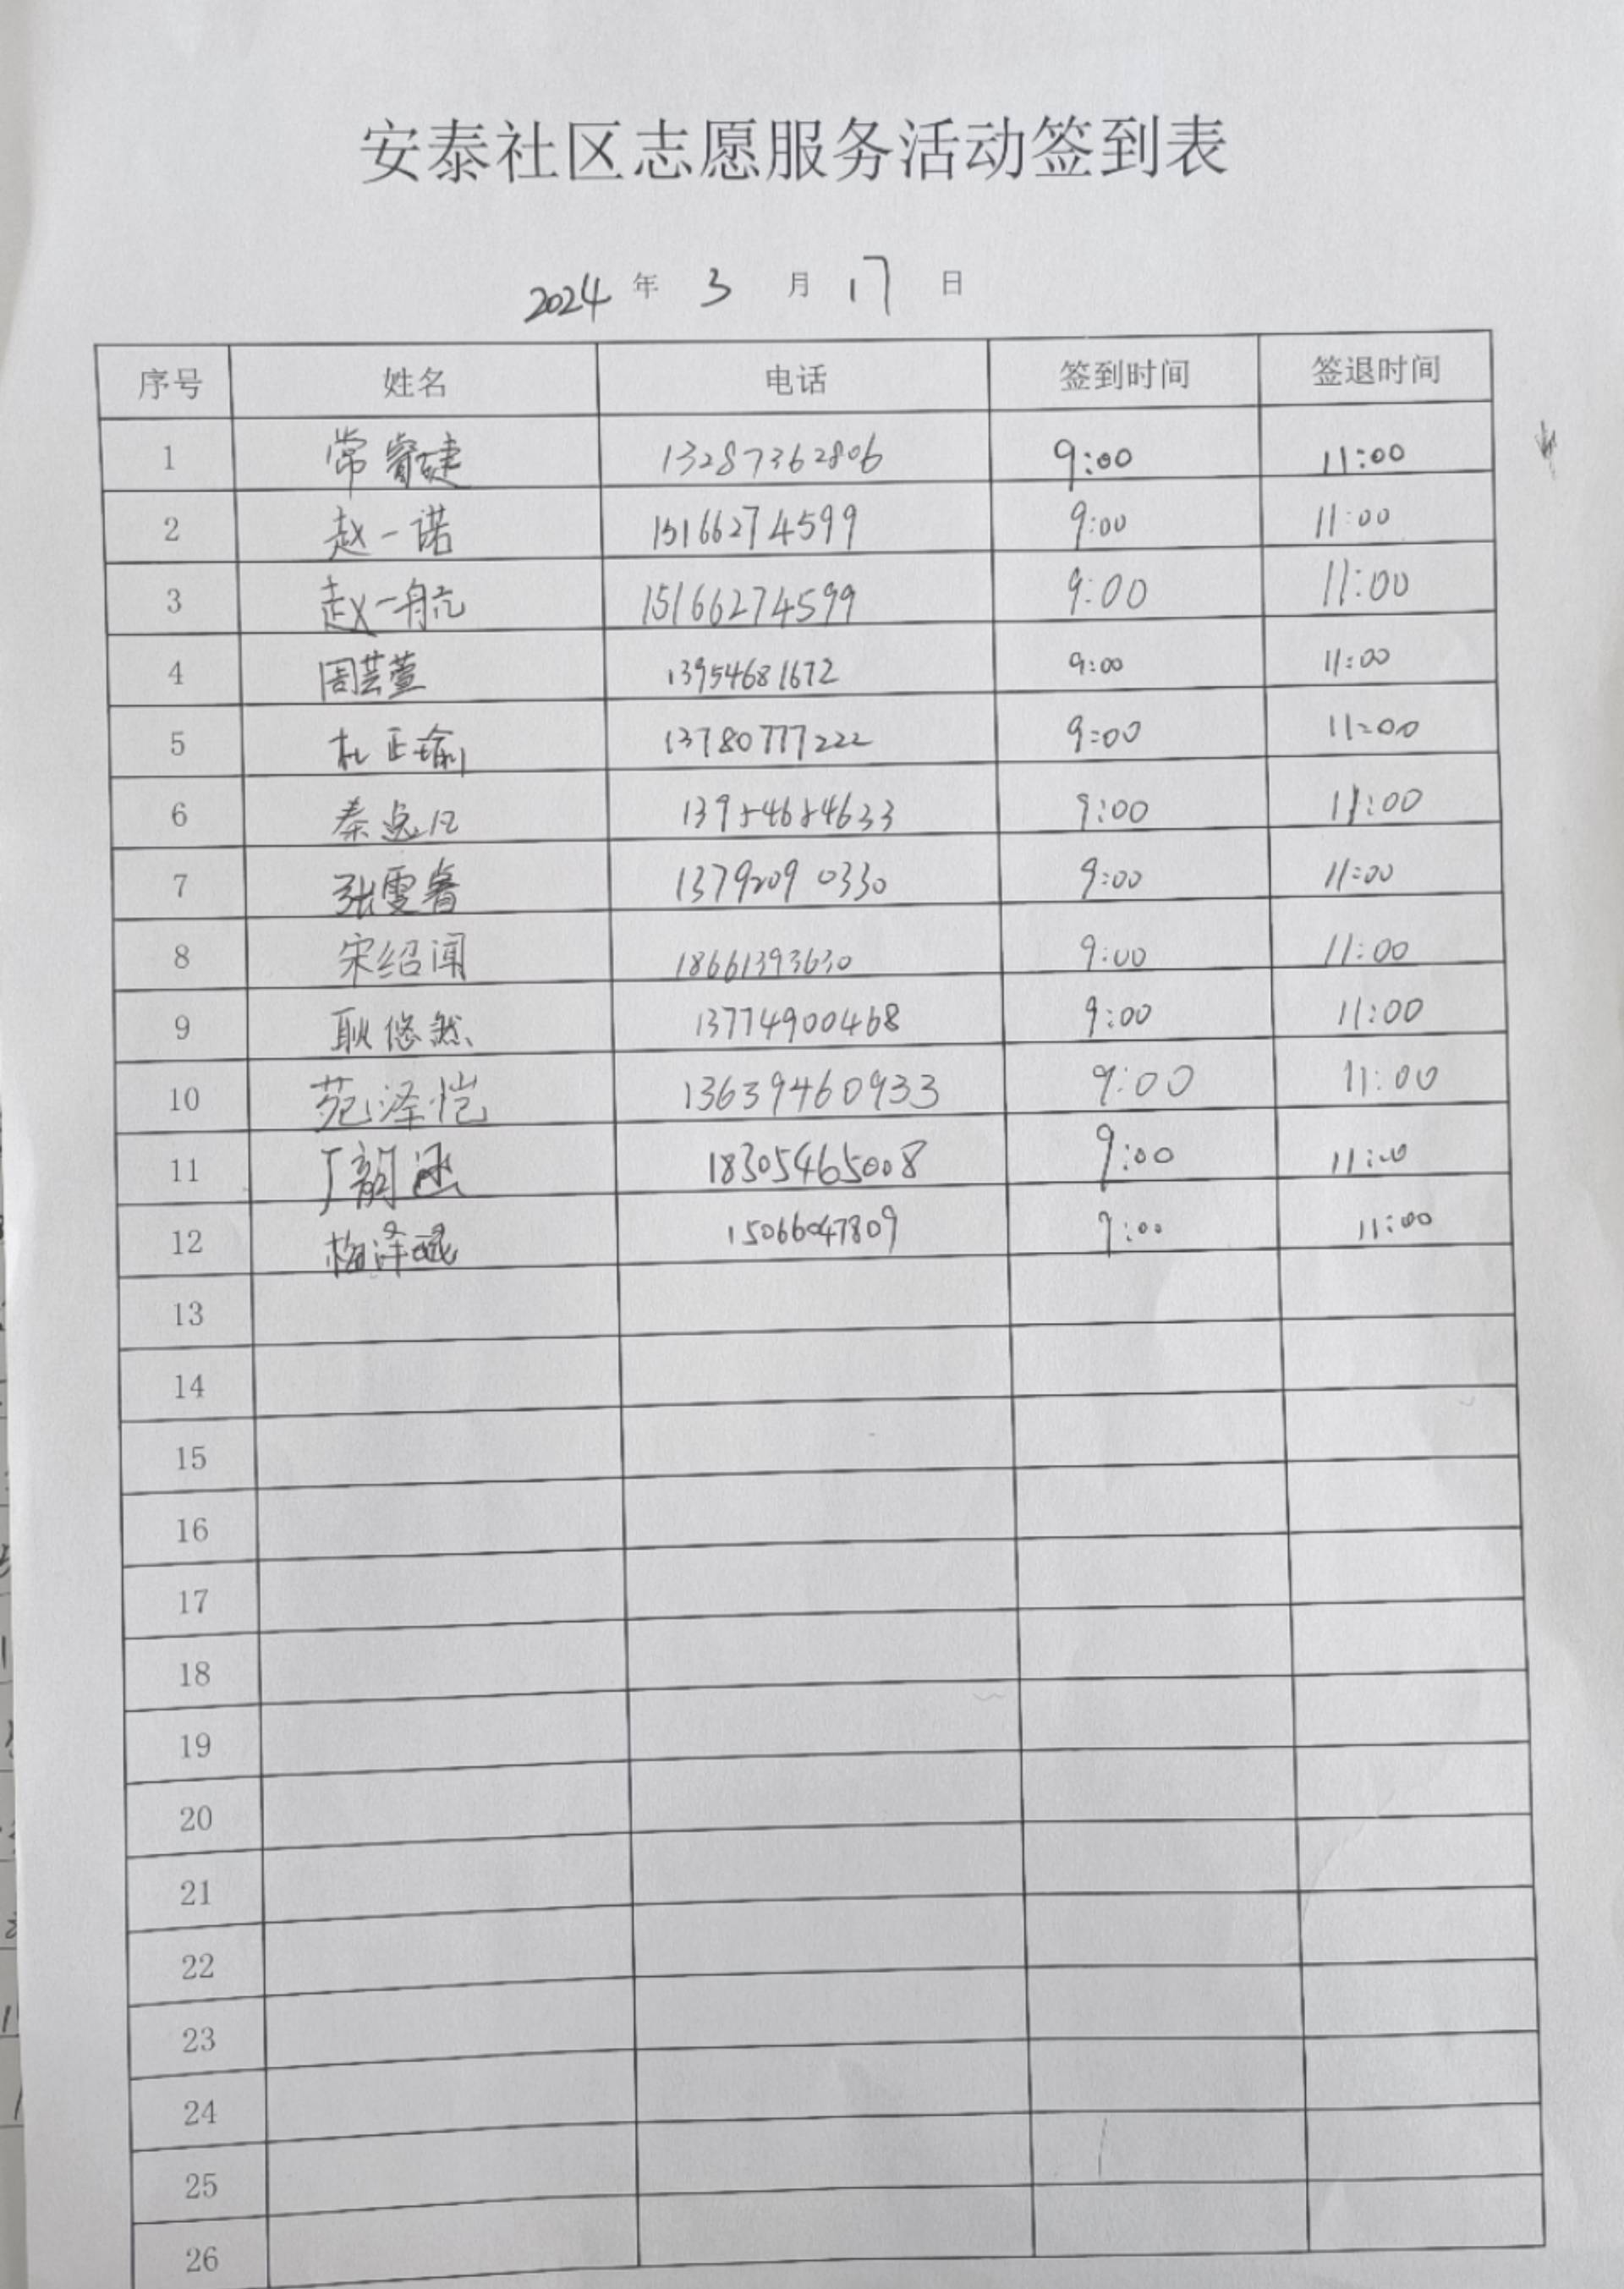 安泰社区志愿服务活动签到表
2024 年 3 月 17 日
序号 姓名 电话 签到时间 签退时间
1 常睿婕 13287362806 9:00 11:00
2 赵一诺 15166274599 9:00 11:00
3 赵一航 15166274599 9:00 11:00
4 周芸萱 13954681672 9:00 11:00
5 杜正瑜 13780777222 9:00 11:00
6 秦逸凡 13954654633 9:00 11:00
7 张雯睿 13792090330 9:00 11:00
8 宋绍闻 18661393630 9:00 11:00
9 耿悠然 13774900468 9:00 11:00
10 苑泽恺 13639460933 9:00 11:00
11 丁韵涵 18305465008 9:00 11:00
12 梅泽 15066047809 9:00 11:00
13
14
15
16
17
18
19
20
21
22
23
24
25
26